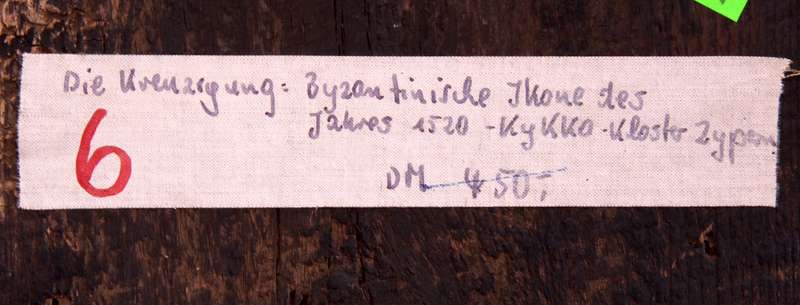 Die Kreuzigung: Byzantinische Ikone des
Jahres 1520 - KYKKO - Kloster Zypern
6
DM 450,-